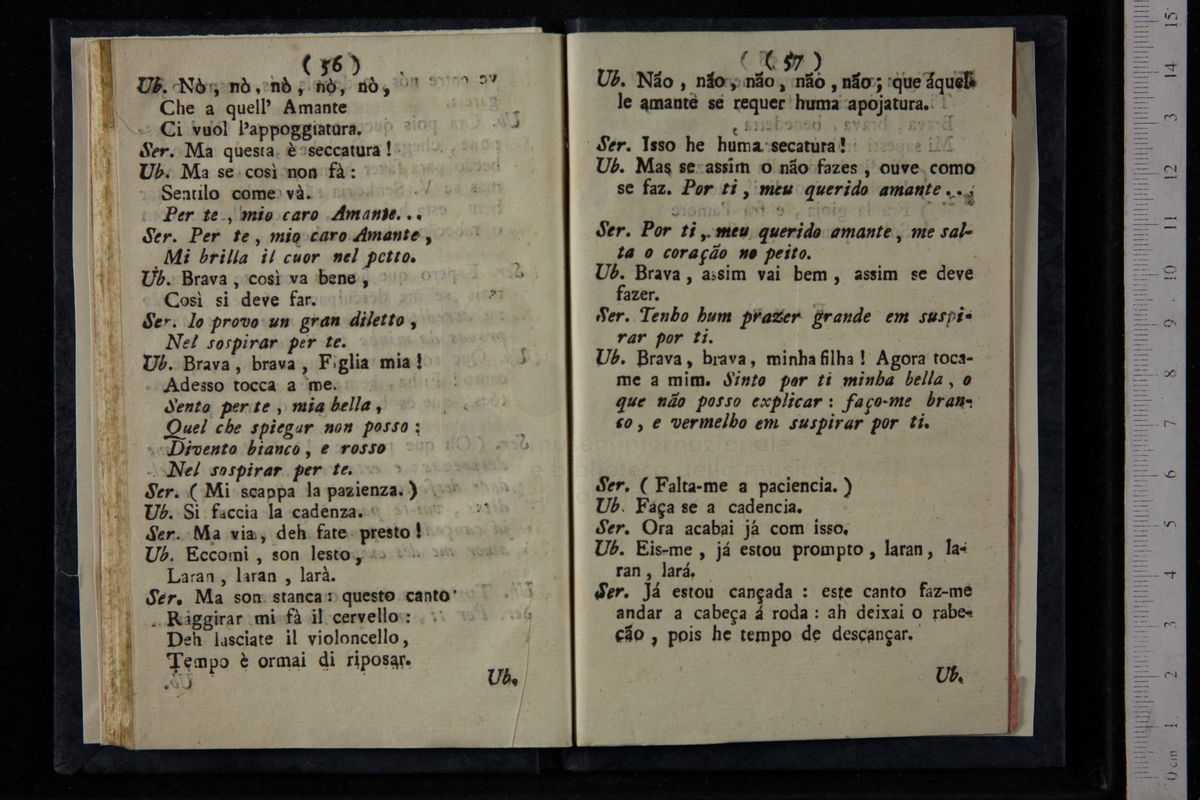 ( 56 )
Ub. Nò, nò, nò, nò, nò,
Che a quell' Amante
Ci vuol l'appoggiatura.
Ser. Ma questa è seccatura!
Ub. Ma se così non fà:
Sentilo come và.
Per te, mio caro Amante...
Ser. Per te, mio caro Amante,
Mi brilla il cuor nel petto.
Ub. Brava, così va bene,
Così si deve far.
Ser. Io provo un gran diletto,
Nel sospirar per te.
Ub. Brava, brava, Figlia mia!
Adesso tocca a me.
Sento per te, mia bella,
Quel che spiegar non posso;
Divento bianco, e rosso
Nel sospirar per te.
Ser. (Mi scappa la pazienza.)
Ub. Si faccia la cadenza.
Ser. Ma via, deh fate presto!
Ub. Eccomi, son lesto,
Laran, laran, larà.
Ser. Ma son stanca: questo canto
Raggirar mi fà il cervello:
Deh lasciate il violoncello,
Tempo è ormai di riposar.
Ub.
( 57 )
Ub. Não, não, não, não, não; que áquel-
le amante se requer huma apojatura.
Ser. Isso he huma secatura!
Ub. Mas se assim o não fazes, ouve como
se faz. Por ti, meu querido amante...
Ser. Por ti, meu querido amante, me sal-
ta o coração no peito.
Ub. Brava, assim vai bem, assim se deve
fazer.
Ser. Tenho hum prazer grande em suspi-
rar por ti.
Ub. Brava, brava, minha filha! Agora toca-
me a mim. Sinto por ti minha bella, o
que não posso explicar: faço-me bran-
co, e vermelho em suspirar por ti.
Ser. (Falta-me a paciencia.)
Ub. Faça se a cadencia.
Ser. Ora acabai já com isso.
Ub. Eis-me, já estou prompto, laran, la-
ran, lará.
Ser. Já estou cançada: este canto faz-me
andar a cabeça á roda: ah deixai o rabe-
cão, pois he tempo de descançar.
Ub.